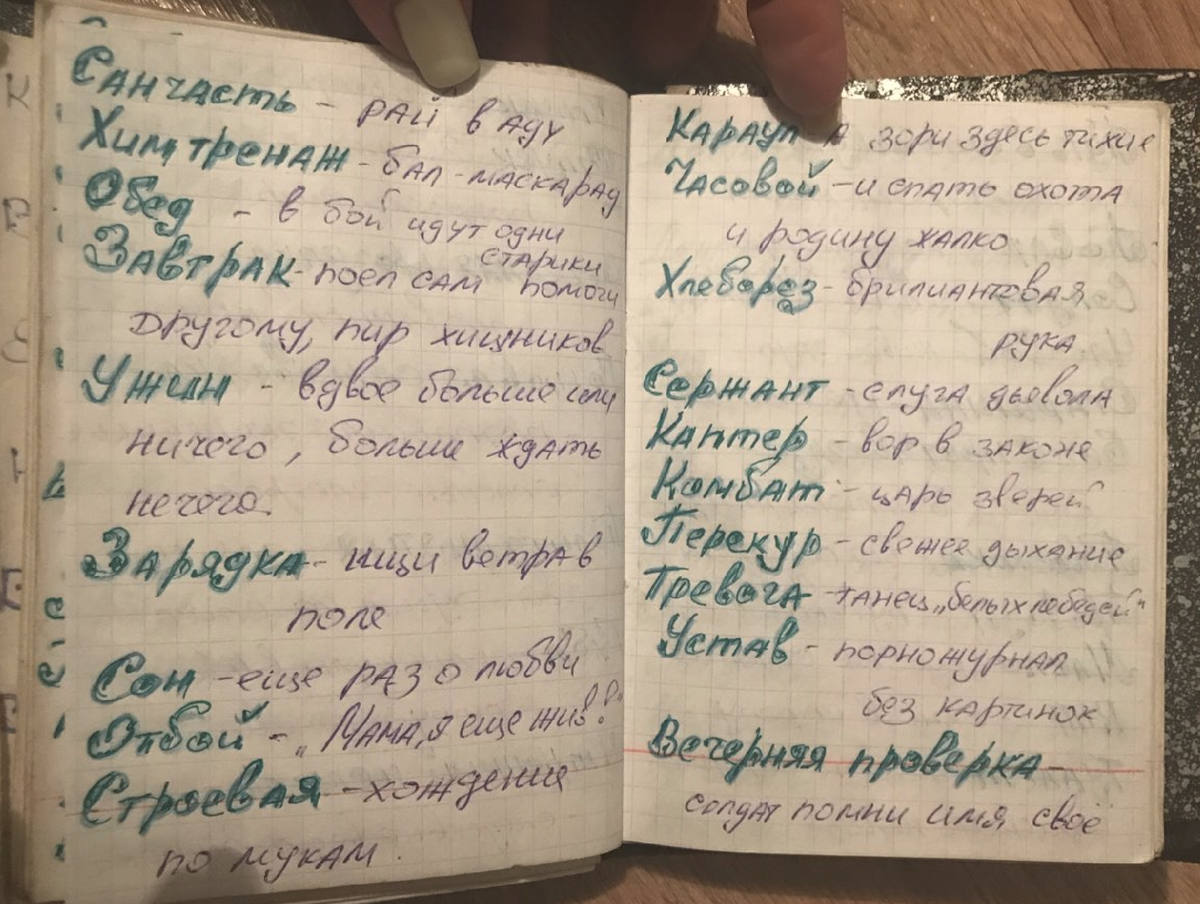 Санчасть - рай в аду
Химтренаж - бал-маскарад
Обед - в бой идут одни
старики
Завтрак - поел сам помоги
другому, пир хищников
Ужин - вдвое больше или
ничего, больше ждать
нечего.
Зарядка - ищи ветра в
поле
Сон - еще раз о любви
Отбой - "Мама, я еще жив!"
Строевая - хождение
по мукам.
Караул А зори здесь тихие
Часовой - и спать охота
и родину жалко
Хлеборез - брилиантовая
рука
Сержант - слуга дьявола
Каптер - вор в законе
Комбат - царь зверей
Перекур - свежее дыхание
Тревога - танец „белых лебедей"
Устав - порножурнал
без картинок
Вечерняя проверка -
солдат помни имя своё